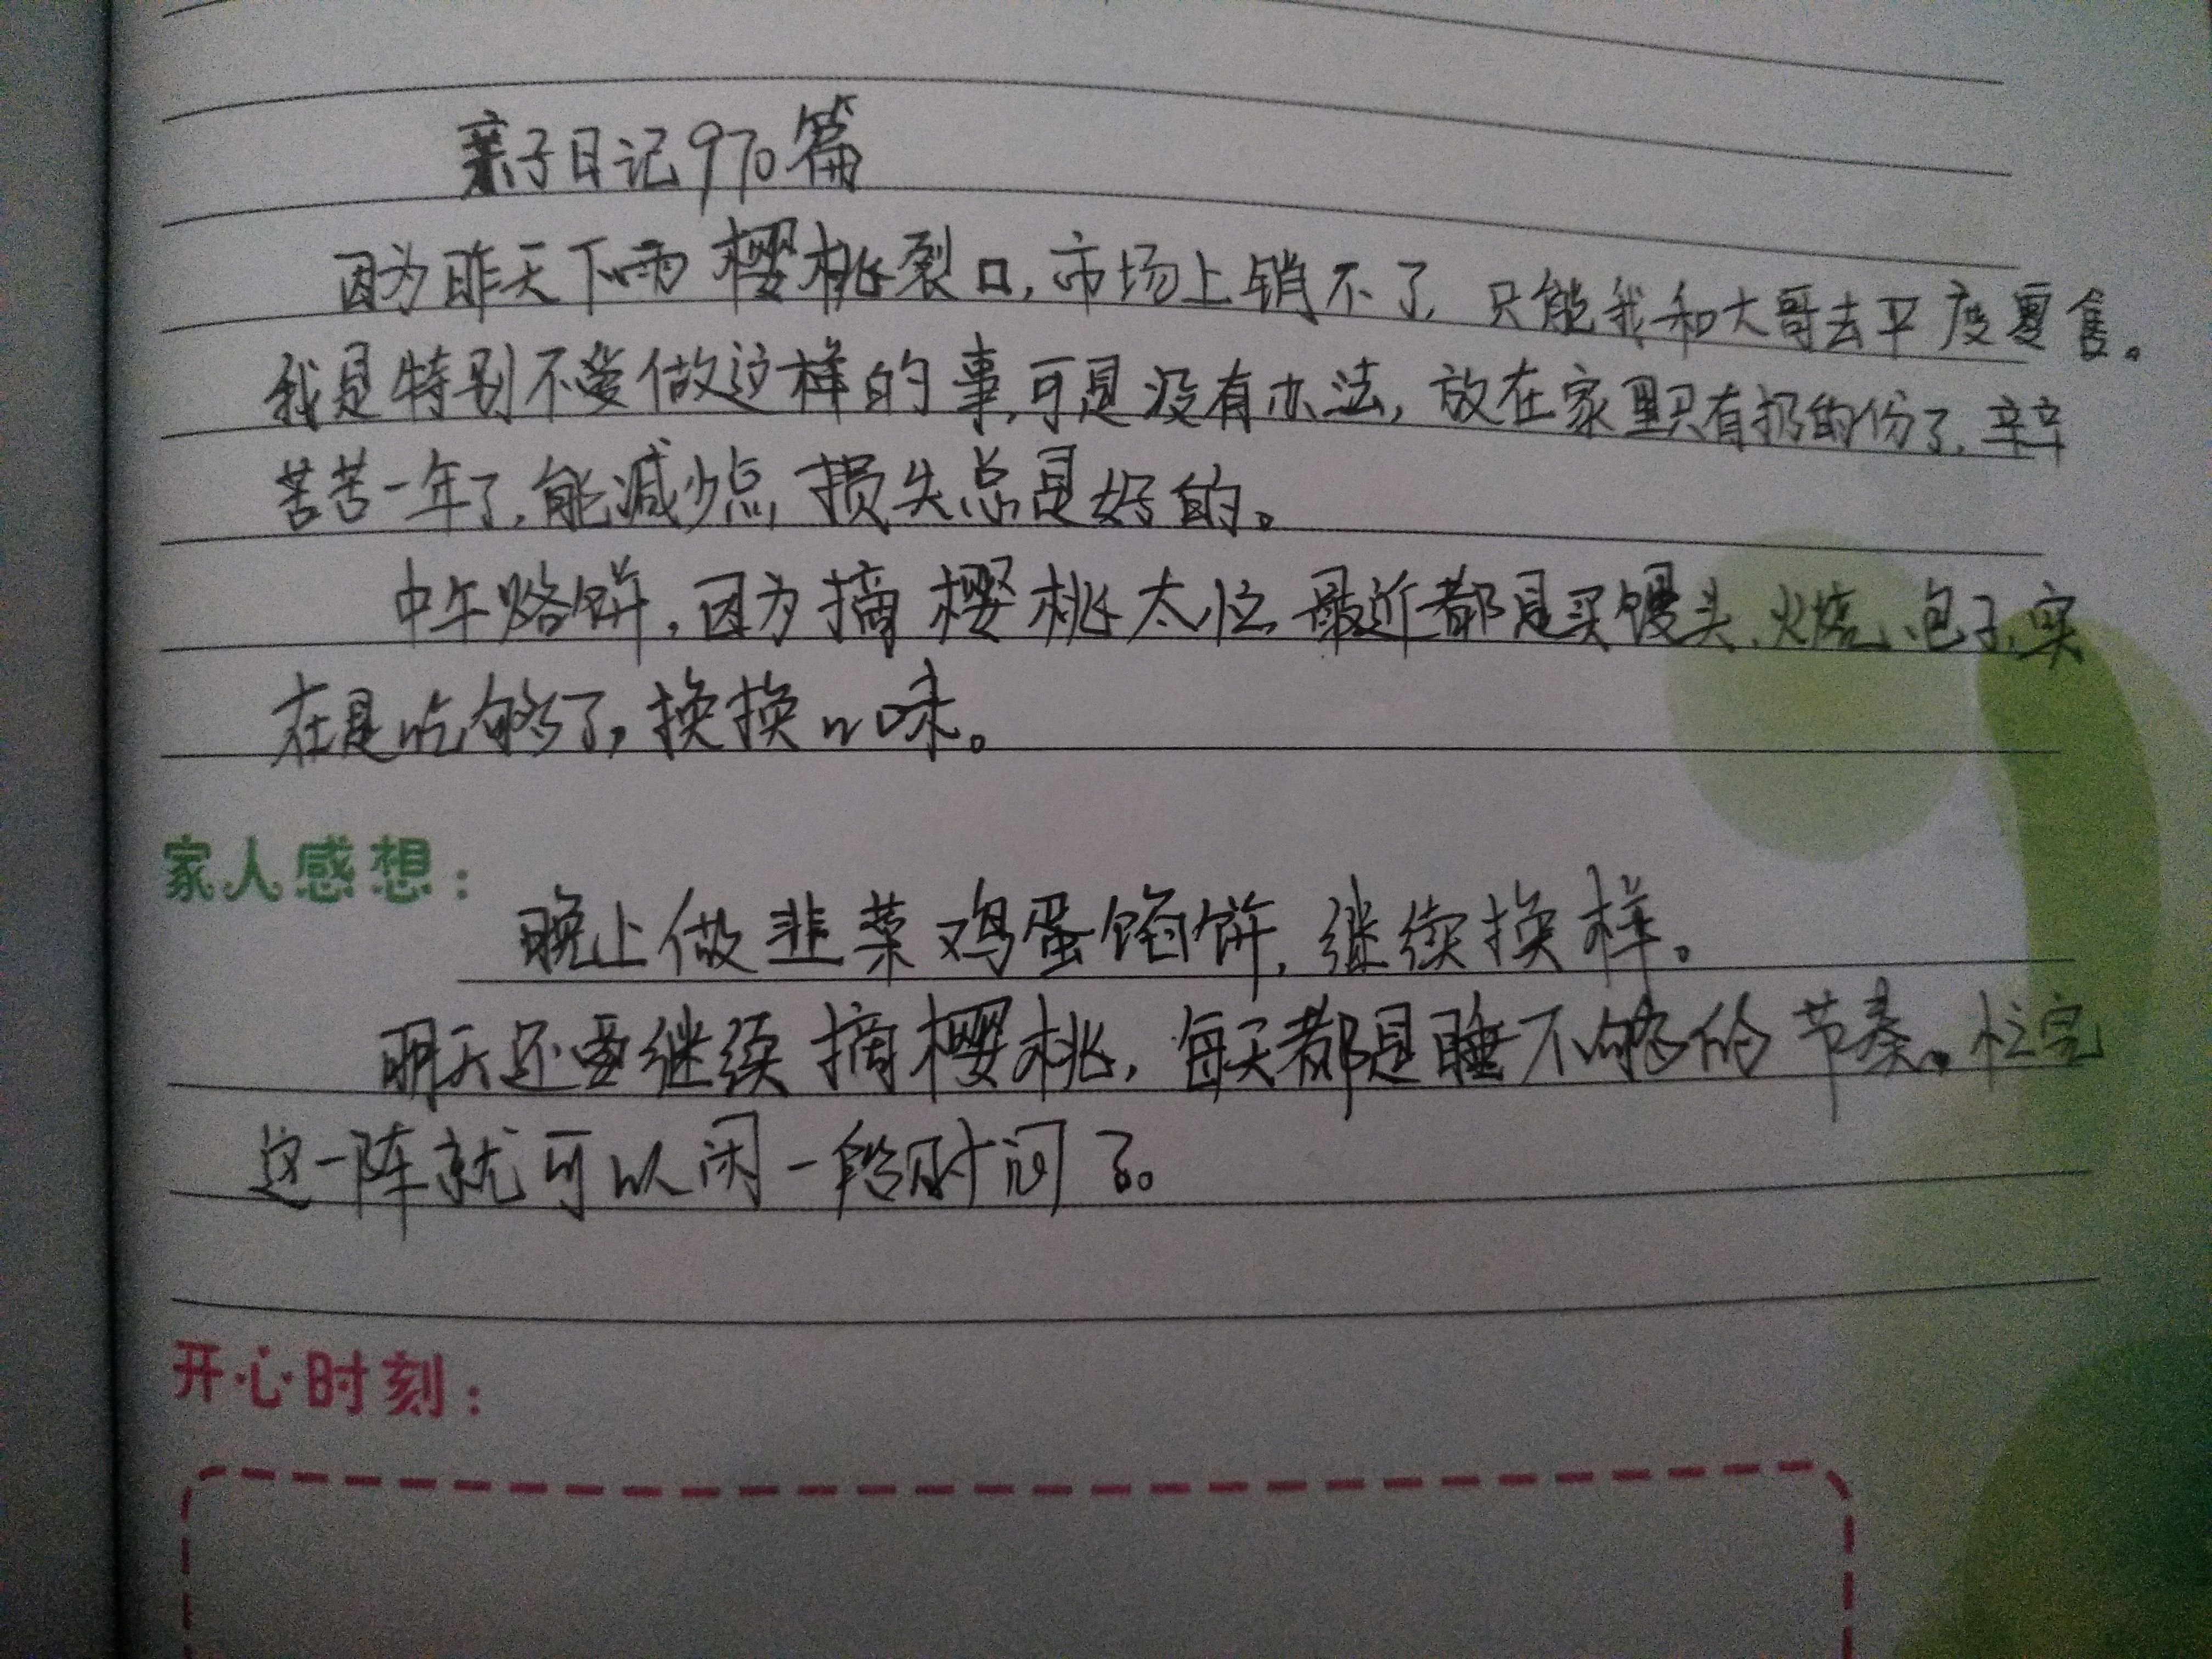 亲子日记970篇
因为昨天下雨樱桃裂口,市场上销不了,只能我和大哥去平度零售。
我是特别不爱做这样的事,可是没有办法,放在家里只有扔的份了,辛辛
苦苦一年了,能减少点损失总是好的。
中午烙饼,因为摘樱桃太忙,最近都是买馒头、火烧、包子,实
在是吃够了,换换口味。
家人感想:
晚上做韭菜鸡蛋馅饼,继续换样。
明天还要继续摘樱桃,每天都是睡不够的节奏。忙完
这一阵就可以闲一段时间了。
开心时刻: